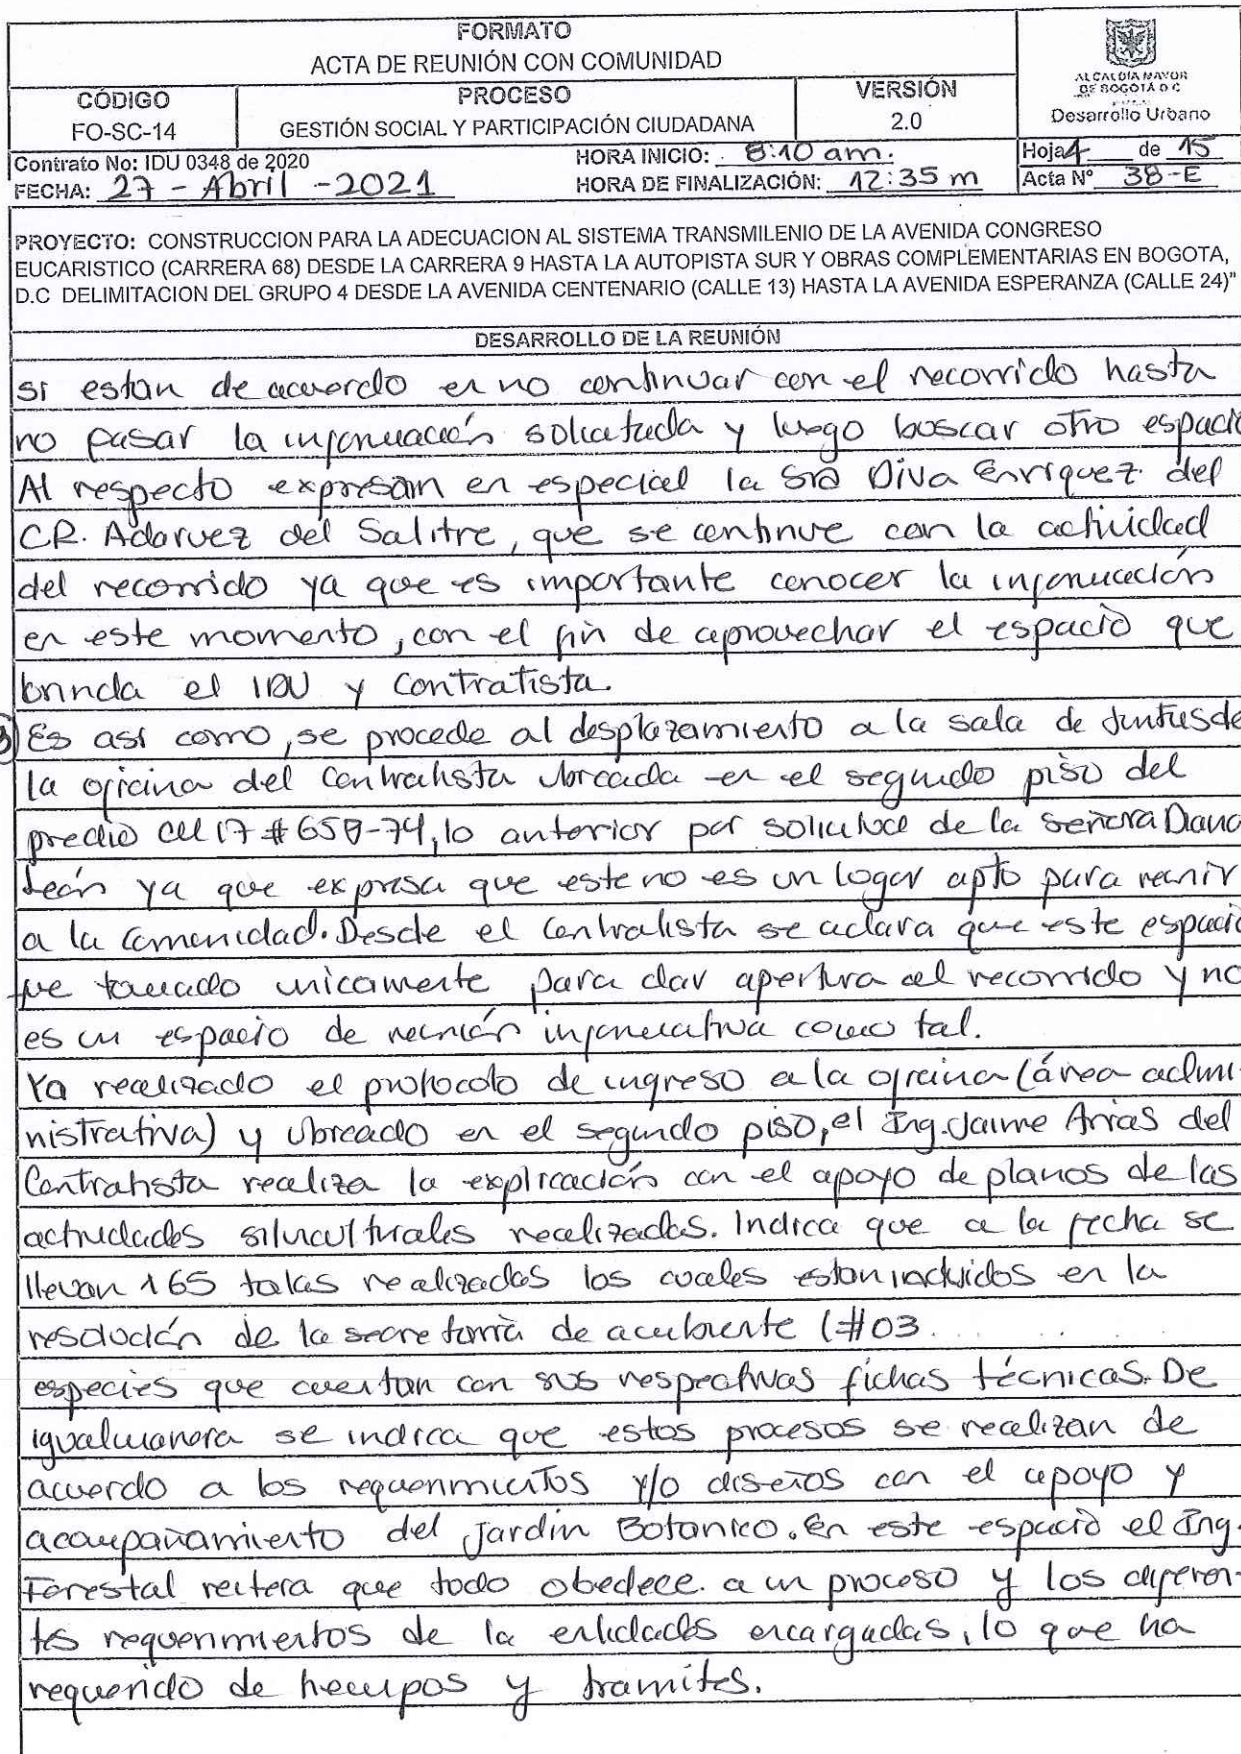 FORMATO
ACTA DE REUNIÓN CON COMUNIDAD
CÓDIGO
FO-SC-14
PROCESO
GESTIÓN SOCIAL Y PARTICIPACIÓN CIUDADANA
VERSIÓN
2.0
ALCALDÍA MAYOR
DE BOGOTÁ D.C
Desarrollo Urbano
Contrato No: IDU 0348 de 2020
FECHA: 27 - Abril - 2021
HORA INICIO: 8:10 am.
HORA DE FINALIZACIÓN: 12:35 m
Hoja 4 de 15
Acta N° 38-E
PROYECTO: CONSTRUCCION PARA LA ADECUACION AL SISTEMA TRANSMILENIO DE LA AVENIDA CONGRESO
EUCARISTICO (CARRERA 68) DESDE LA CARRERA 9 HASTA LA AUTOPISTA SUR Y OBRAS COMPLEMENTARIAS EN BOGOTA,
D.C DELIMITACION DEL GRUPO 4 DESDE LA AVENIDA CENTENARIO (CALLE 13) HASTA LA AVENIDA ESPERANZA (CALLE 24)"
DESARROLLO DE LA REUNIÓN
si estan de acuerdo en no continuar con el recorrido hasta
no pasar la información solicitada y luego buscar otro espacio
Al respecto expresan en especial la Sra Diva Enriquez del
CR. Adarvez del Salitre, que se continue con la actividad
del recorrido ya que es importante conocer la información
en este momento, con el fin de aprovechar el espacio que
brinda el IDU y Contratista.
Es así como, se procede al desplazamiento a la sala de Juntas de
la oficina del Contratista ubicada en el segundo piso del
predio cll 17 # 65B-74, lo anterior por solicitud de la señora Diana
León ya que expresa que este no es un lugar apto para reunir
a la comunidad. Desde el Contratista se aclara que este espacio
fue tomado unicamente para dar apertura al recorrido y no
es un espacio de reunión informativa como tal.
Ya realizado el protocolo de ingreso a la oficina (área admi-
nistrativa) y ubicado en el segundo piso, el Ing. Jaime Arias del
Contratista realiza la explicación con el apoyo de planos de las
actividades silviculturales realizadas. Indica que a la fecha se
llevan 165 talas realizadas los cuales estan incluidos en la
resolución de la secretaria de ambiente (#03
especies que cuentan con sus respectivas fichas técnicas. De
igual manera se indica que estos procesos se realizan de
acuerdo a los requerimientos y/o diseños con el apoyo y
acompañamiento del Jardín Botanico. En este espacio el Ing.
Forestal reitera que todo obedece a un proceso y los diferen-
tes requerimientos de la entidades encargadas, lo que ha
requerido de tiempos y tramites.